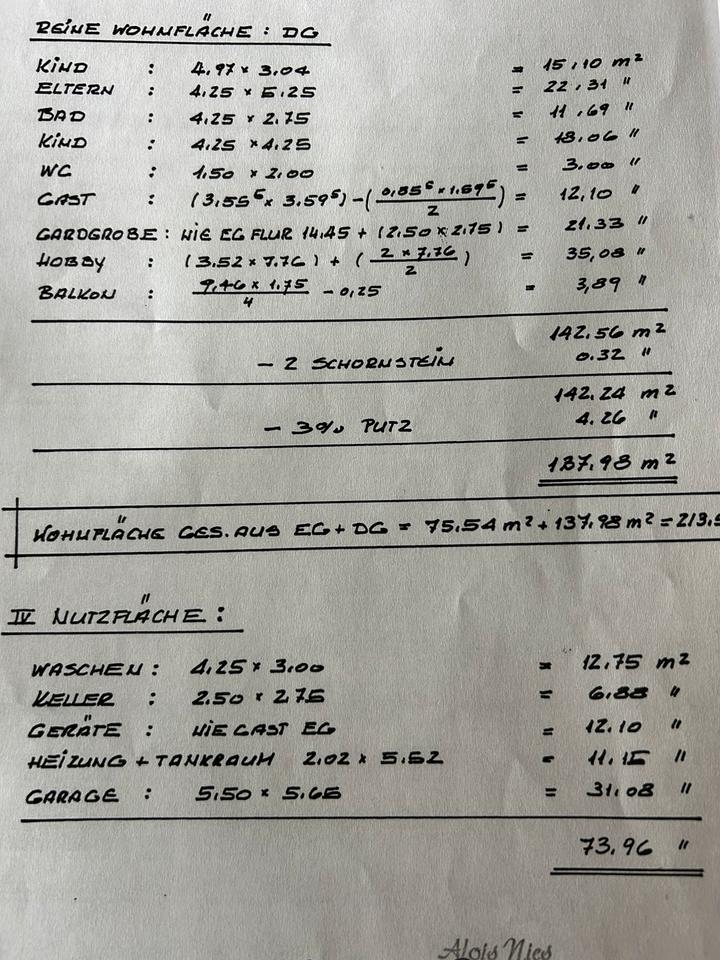 REINE WOHNFLÄCHE : DG
KIND : 4.97 x 3.04 = 15,10 m²
ELTERN : 4.25 x 5.25 = 22,31 "
BAD : 4.25 x 2.75 = 11,69 "
KIND : 4.25 x 4.25 = 18.06 "
WC : 1.50 x 2.00 = 3.00 "
GAST : (3,55⁵ x 3.59⁵) - (0,85⁵ x 1.59⁵ / 2) = 12,10 "
GARDGROBE : WIE EG FLUR 14.45 + (2.50 x 2.75) = 21.33 "
HOBBY : (3.52 x 7.76) + (2 x 7.76 / 2) = 35,08 "
BALKON : 9,46 x 1.75 / 4 - 0,25 = 3,89 "
142.56 m²
- 2 SCHORNSTEIN 0.32 "
142.24 m²
- 3% PUTZ 4.26 "
137.98 m²
WOHNFLÄCHE GES. AUS EG + DG = 75.54 m² + 137.98 m² = 213.5
IV NUTZFLÄCHE :
WASCHEN : 4.25 x 3.00 = 12.75 m²
KELLER : 2.50 x 2.75 = 6.88 "
GERÄTE : WIE GAST EG = 12.10 "
HEIZUNG + TANKRAUM 2.02 x 5.52 = 11.15 "
GARAGE : 5.50 x 5.65 = 31.08 "
73.96 "
Alois Nies